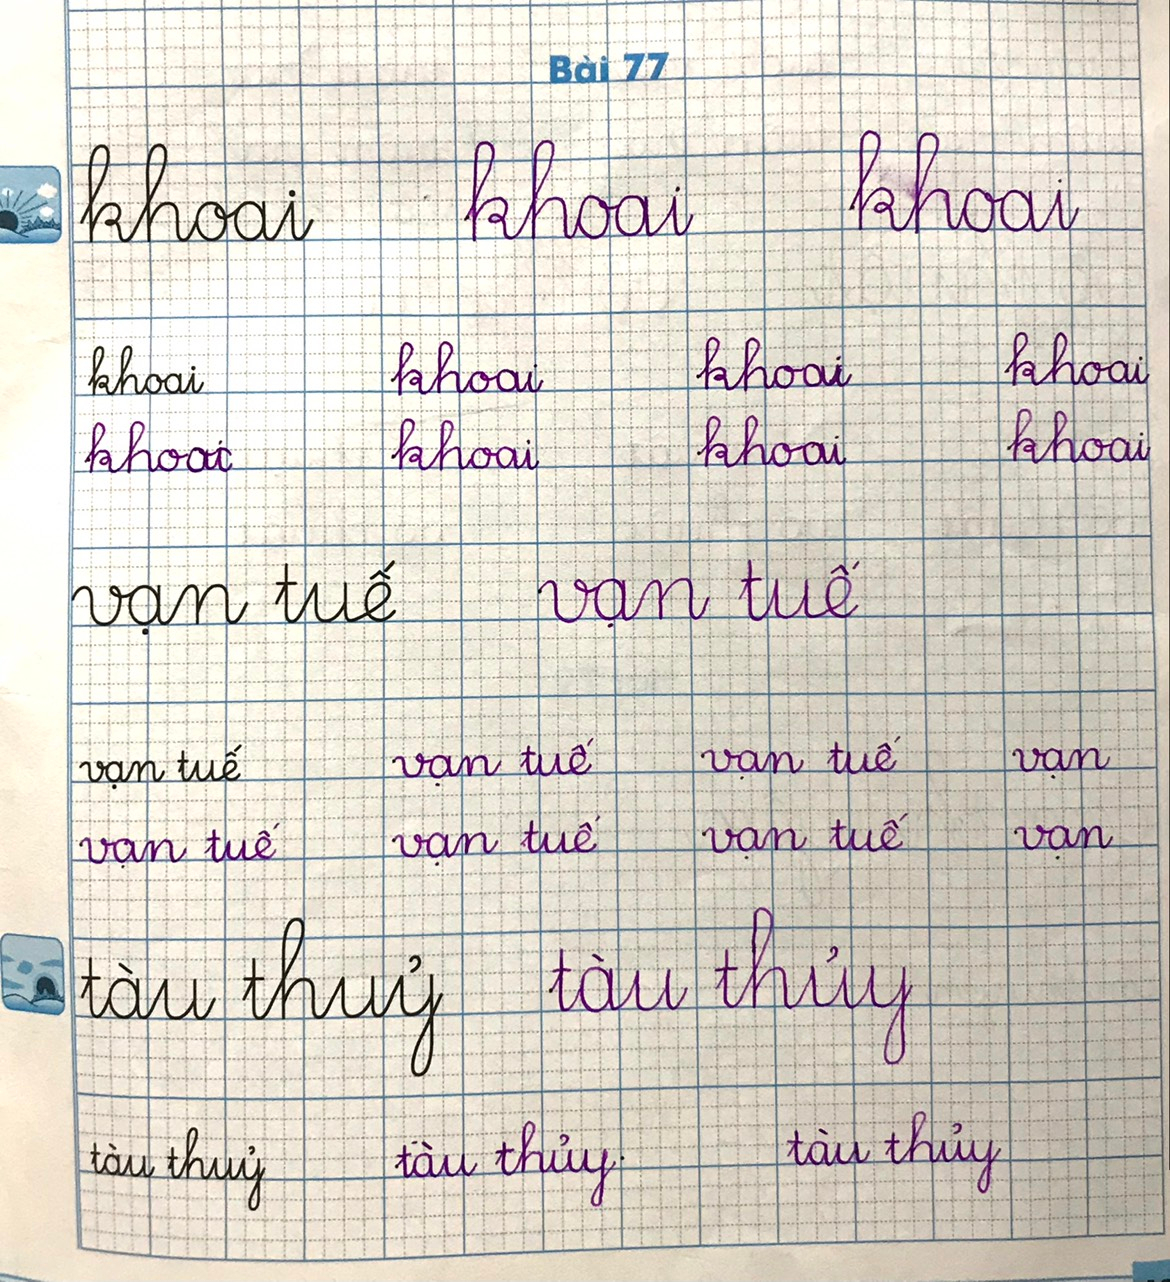 Bài 77
khoai khoai khoai
khoai khoai khoai khoai
khoai khoai khoai khoai
vạn tuế vạn tuế
vạn tuế vạn tuế vạn tuế vạn
vạn tuế vạn tuế vạn tuế vạn
tàu thuỷ tàu thủy
tàu thuỷ tàu thủy tàu thủy